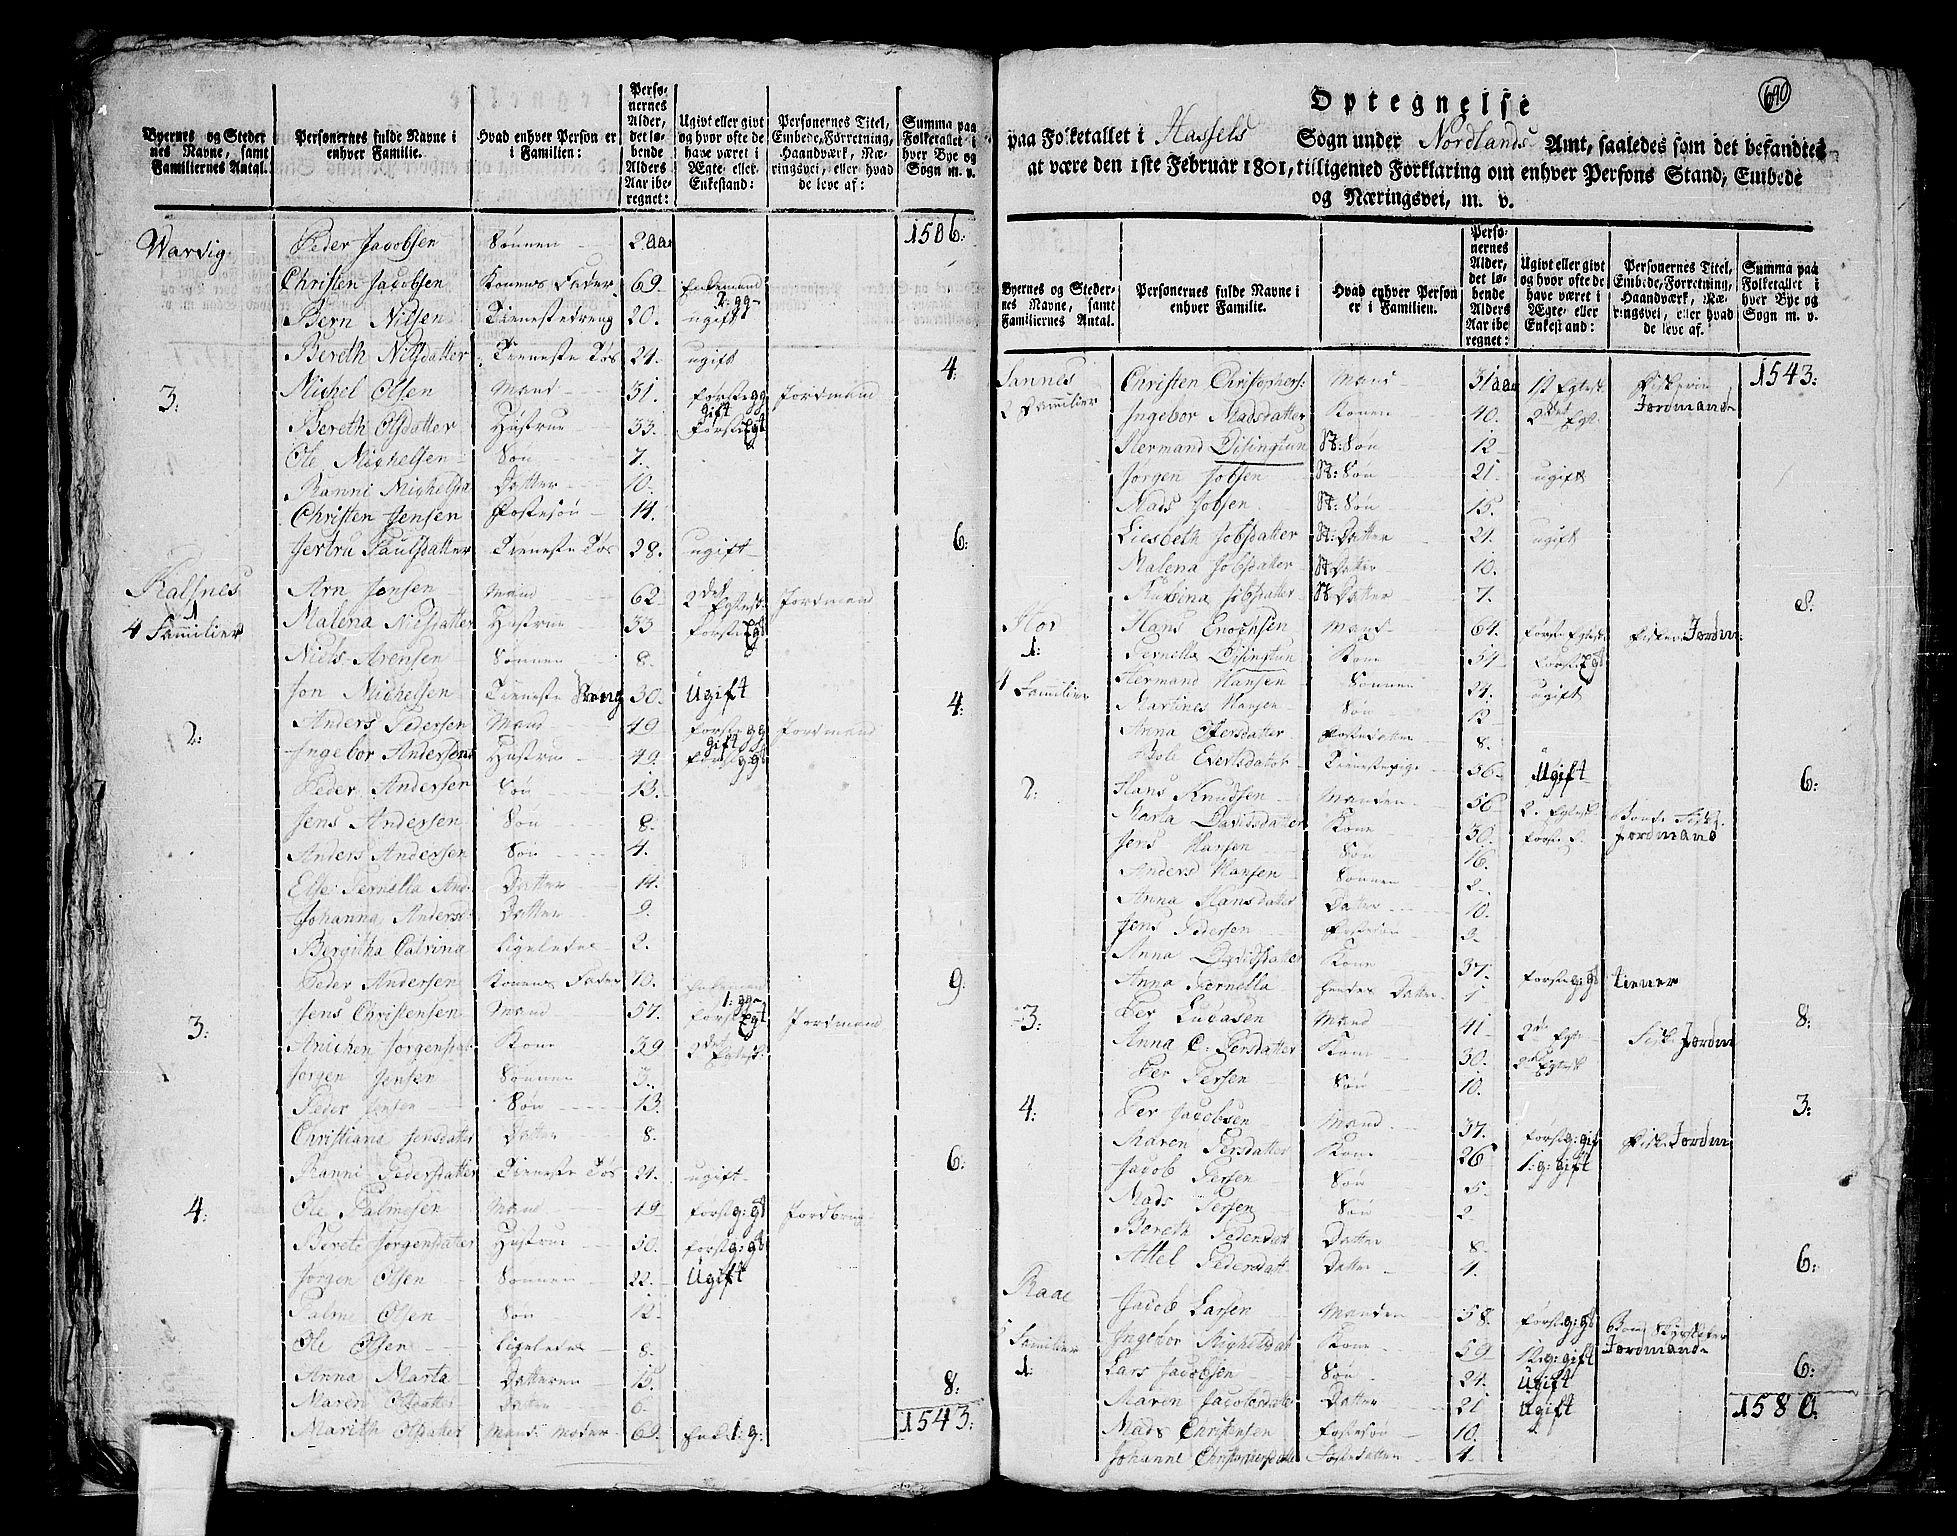 Byernes og Steder nes Navne, samt Familiernes Antal. | Personernes fulde Navne i enhver Familie. | Hvad enhver Person er i Familien: | Personernes Alder, det løbende Alders Aar iberegnet: | Ugivt eller givt og hvor ofte de have været i Ægte- eller Enkestand: | Personernes Titel, Embede, Forretning, Haandværk, Næringsvei, eller hvad de leve af: | Summa paa Folketallet i hver Bye og Sogn m. v.
Warvig Peder Jacobsen Sønnen 2 aar 1506:
Christen Jacobsen Konens Fader 69. Enkemand 2: gg
Bern Nilsen Tieneste dreng 20. ugift
Bereth Nilsdatter Tieneste Tøs 24. ugift 4:
3: Michel Olsen Mand 31. første gg gift Jordmand
Bereth Olsdatter Hustrue 33. Første Egt
Ole Michelsen Søn 7.
Ranni Michelsda Datter 10.
Christen Jensen Fostesøn 14.
Jertru Paulsdatter Tieneste Tøs 28. ugift 6:
Kalsnes Arn Jensen Mand 62. 2det Egtesk: Jordmand
1
4 Familier Malena Nilsdatter Hustrue 33 første Egt
Niels Arensen Sønnen 8.
Jon Michelsen Tieneste Dreng 30. Ugift 4:
2: Anders Pedersen Mand 49 første gg gift Jordmand
Ingebor Andersdat Hustrue 49. først g gt
Peder Andersen Søn 13.
Jens Andersen Søn 8.
Anders Andersen Søn 4.
Else Pernella And: Datter 14.
Johanna Anders: Datter 9.
Bergitha Catrina Ligeledes 2.
Peder Andersen Konens Fader Enkemand 1: gg 9.
3: Jens Christensen Mand 57. første Egt Jordmand
Anichen Jorgensdat: Kone 39 2det Egtesk.
Jørgen Jensen Sønnen 3.
Peder Jensen Søn 13.
Christiana Jensdatter Datter 8.
Ranni Pedersdatter Tieneste Tøs 21. ugift 6:
4: Ole Palmesen Mand 49. først g: gt Jordbrug
Berete Jorgensdatter Hustrue 50. først g: gt
Jorgen Olsen Sønnen 22. Ugift
Palme Olsen Søn 12.
Ole Olsen Ligeledes 8.
Anna Marta Datteren 15. 8:
Maren Olsdatter Datter 6.
Mareth Olsdatter Mands Moder 69. Enke 1: g: 1543:
690
Optegnelse
paa Folketallet i Hassels Sogn under Nordlands Amt, saaledes som det befandtes
at være den 1ste Februar 1801, tilligemed Forklaring om enhver Persons Stand, Embede
og Næringsvei, m. v.
Byernes og Stedernes Navne, samt Familiernes Antal. | Personernes fulde Navne i enhver Familie. | Hvad enhver Person er i Familien. | Personernes Alder, det løbende Alders Aar iberegnet: | Ugivt eller givt og hvor ofte de have været i Ægte- eller Enkestand: | Personernes Titel, Embede, Forretning, Haandværk, Næringsvei, eller hvad de leve af. | Summa paa Folketallet i hver Bye og Sogn m. v.
Sannes Christen Christophers: Mand 31 aar 1st Egtesk Fiskerie 1543:
2 Familier Ingebor Madsdatter Konen 40. 2det Egt. Jordmand
Hermand Disingtun St: Søn 12
Jørgen Jobsen St: Søn 21. ugift
Mads Jobsen St: Søn 15.
Liesbeth Jobsdatter St: Datter 24. ugift
Malena Jobsdatter St Datter 10.
Jobsdatter St Datter 7. 8:
Hor Hans Enochsen Mand 64. første Egtesk Fisker Jordm:
1: Pernella Disingtun Kone 54 Først Egt
4 Familier Hermand Hansen Sønnen 24. ugift
Martines Hansen Søn 12
Anna Persdatter Fostedatter 8.
Evertsdatter Tienestepige 36. Ugift 6:
2: Hans Knudsen Manden 56 2. Egtesk Bonde Fisk:
Marta Davidsdatter Kone 30. første E. Jordmand
Jens Hansen Søn 16.
Anders Hansen Sønnen 2
Anna Hansdatter Datter 10.
Jens Pedersen 2.
Anna Davidsdatter Kone 37. første g: gt tiener
Anna Pernella hendes Datter 1 8:
3: Per Lucasen Mand 41 2de Egte Fisk: Jordm
Anna C: Persdatter Kone 30. 2det Egtesk
Per Persen Søn 10. 3:
4: Per Jacobsen Mand 37. først g: gift Fisk: Jordm
Maren Persdatter Kone 26 1: g: gift
Jacob Persen Søn 5.
Mads Persen Søn 2
Bereth Pedersdatt Datter 8.
Attel Pedersdatt Datter 4. 6:
Raae Jacob Larsen Manden 58. først g: gt Bond
Familier Ingebor Michelsdat Kone 59 1: g: gift Jordmand
1: Lars Jacobsen Søn 24. Ugift 6:
Maren Jacobsdatter Datter 21 Ugift 1580:
Mads Christensen Fostesøn 10.
Johanne Christophersdatter Fostedatter 4.